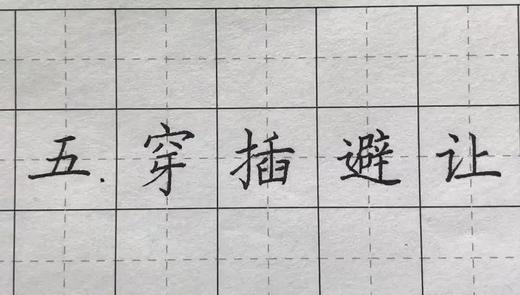 五.穿插避让